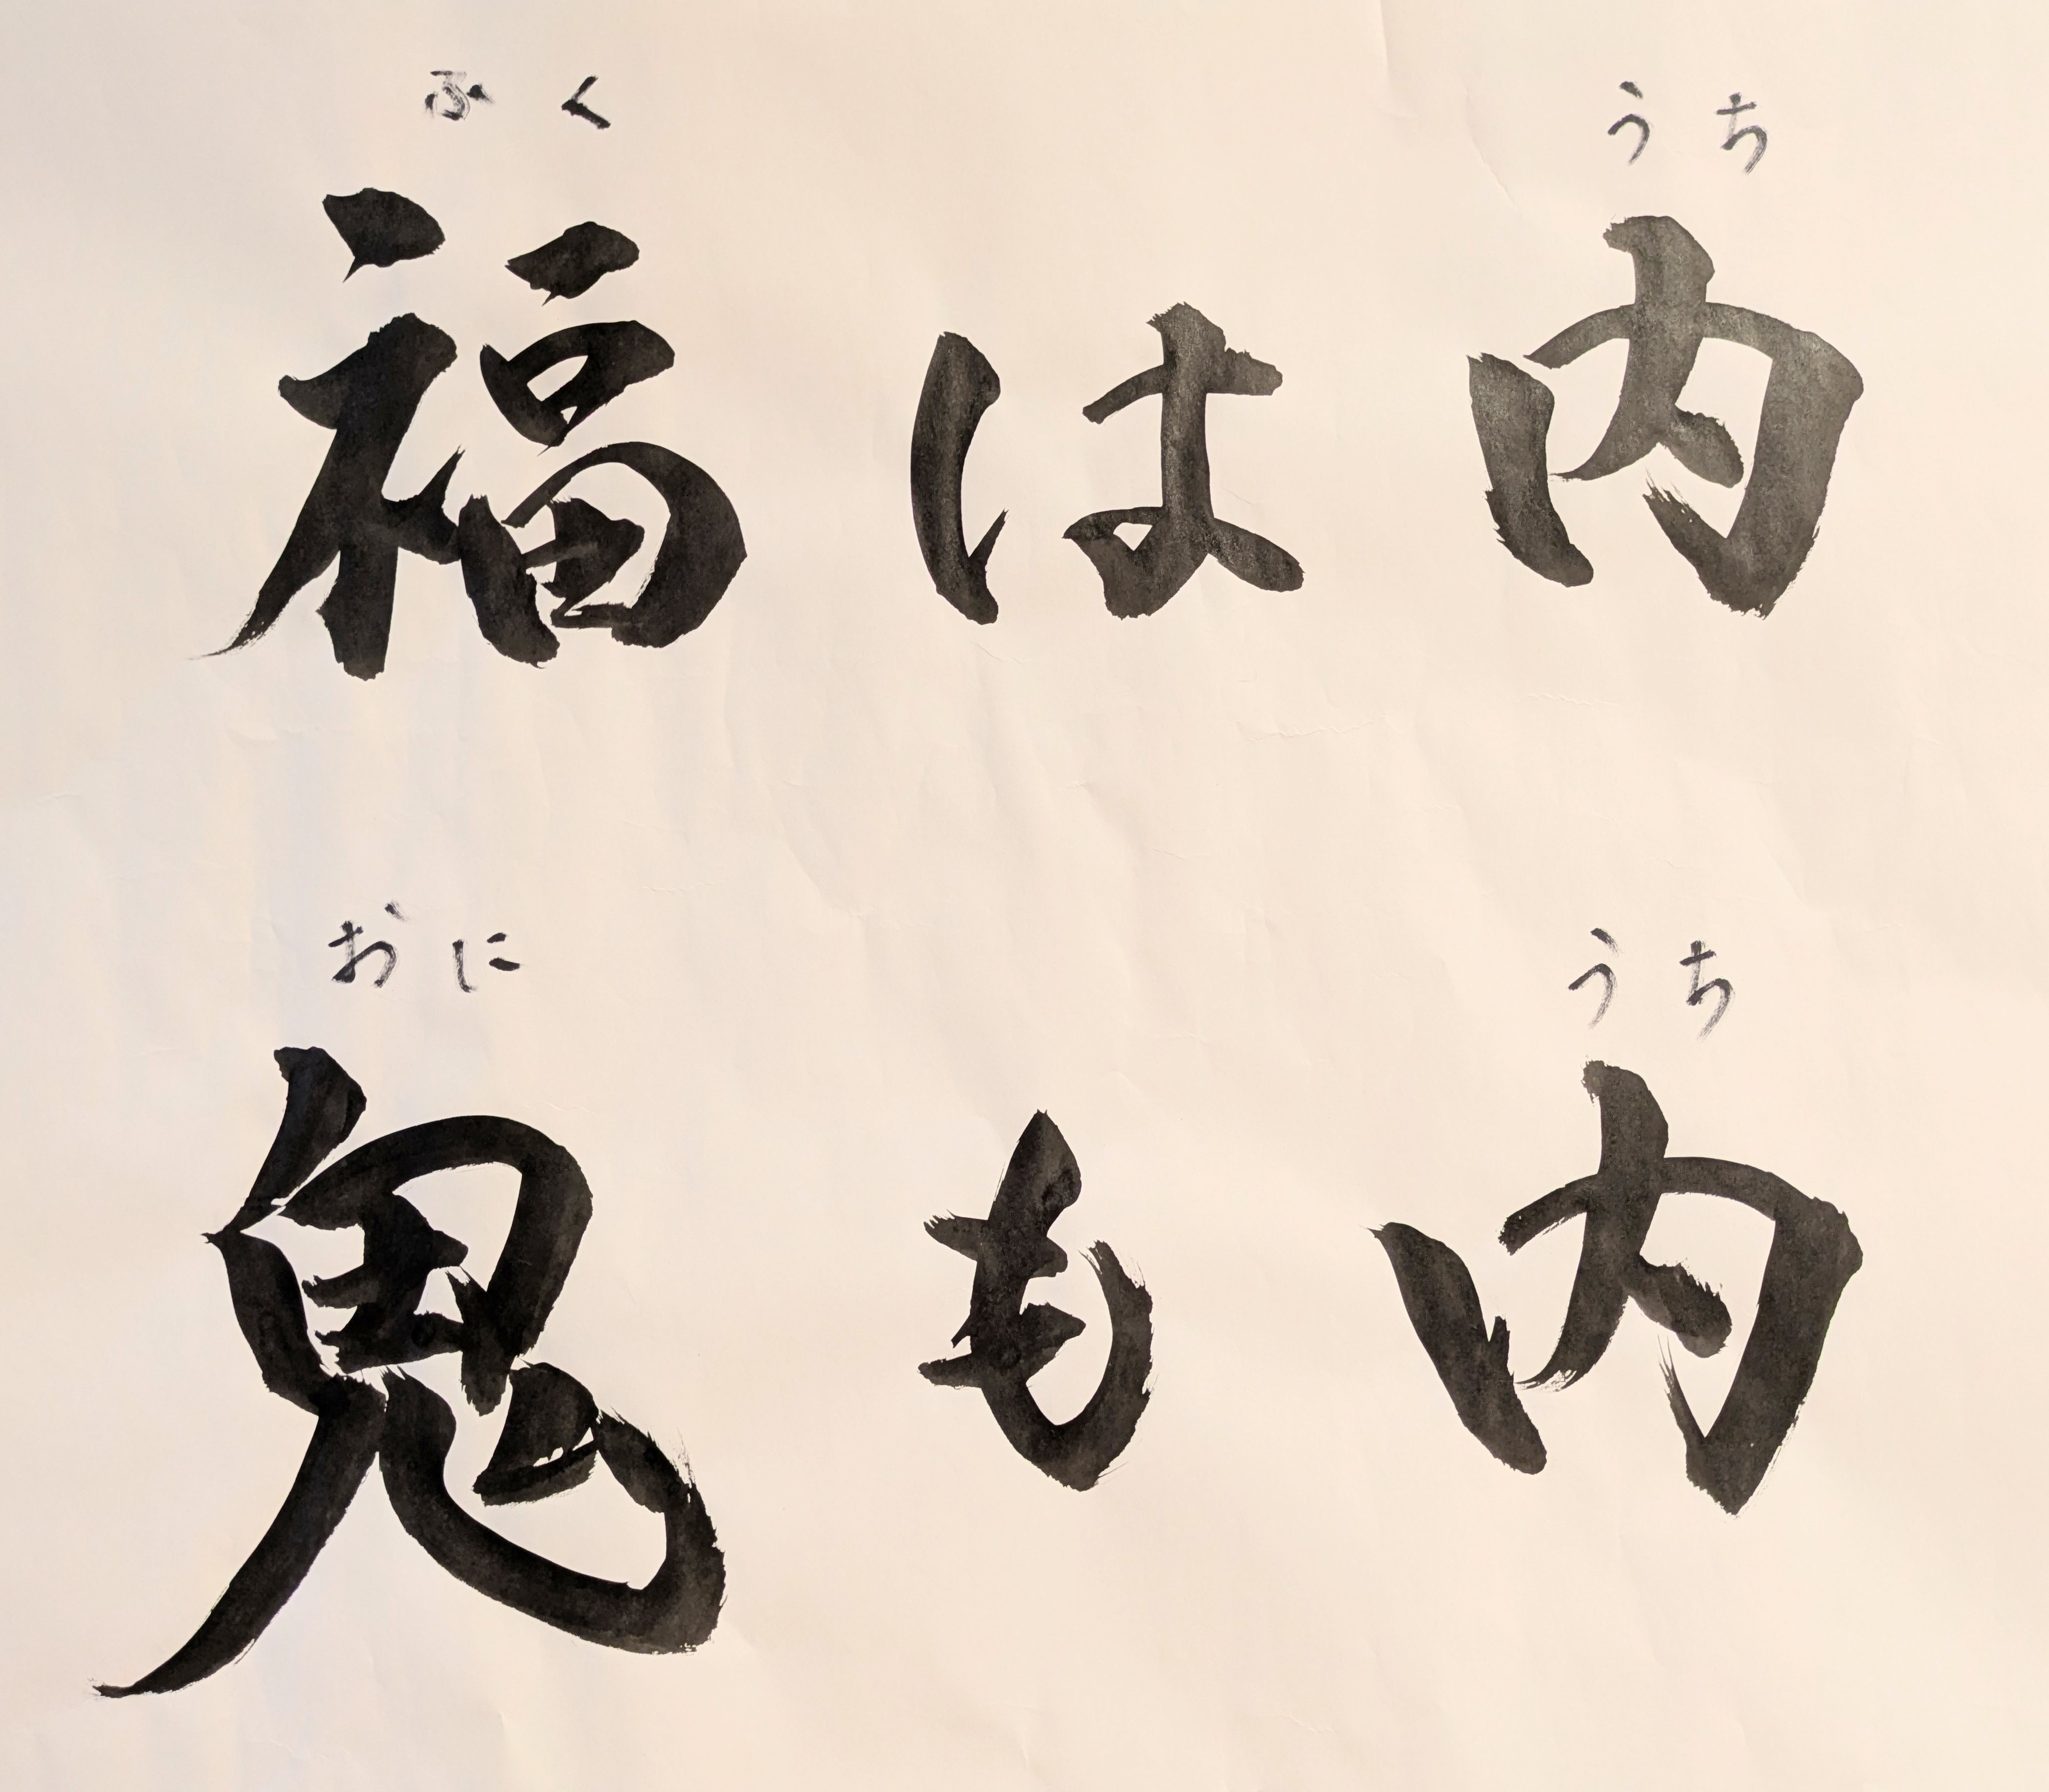 ふく うち
福は内
おに うち
鬼も内